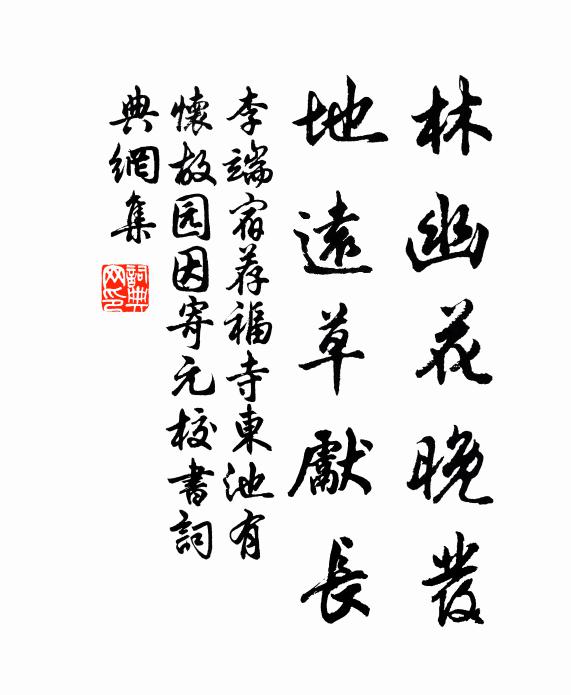 林幽花晚發
地遠草獻長
李端宿荐福寺東池有
懷故园因寄元校書詞
典網集
詞典
网印